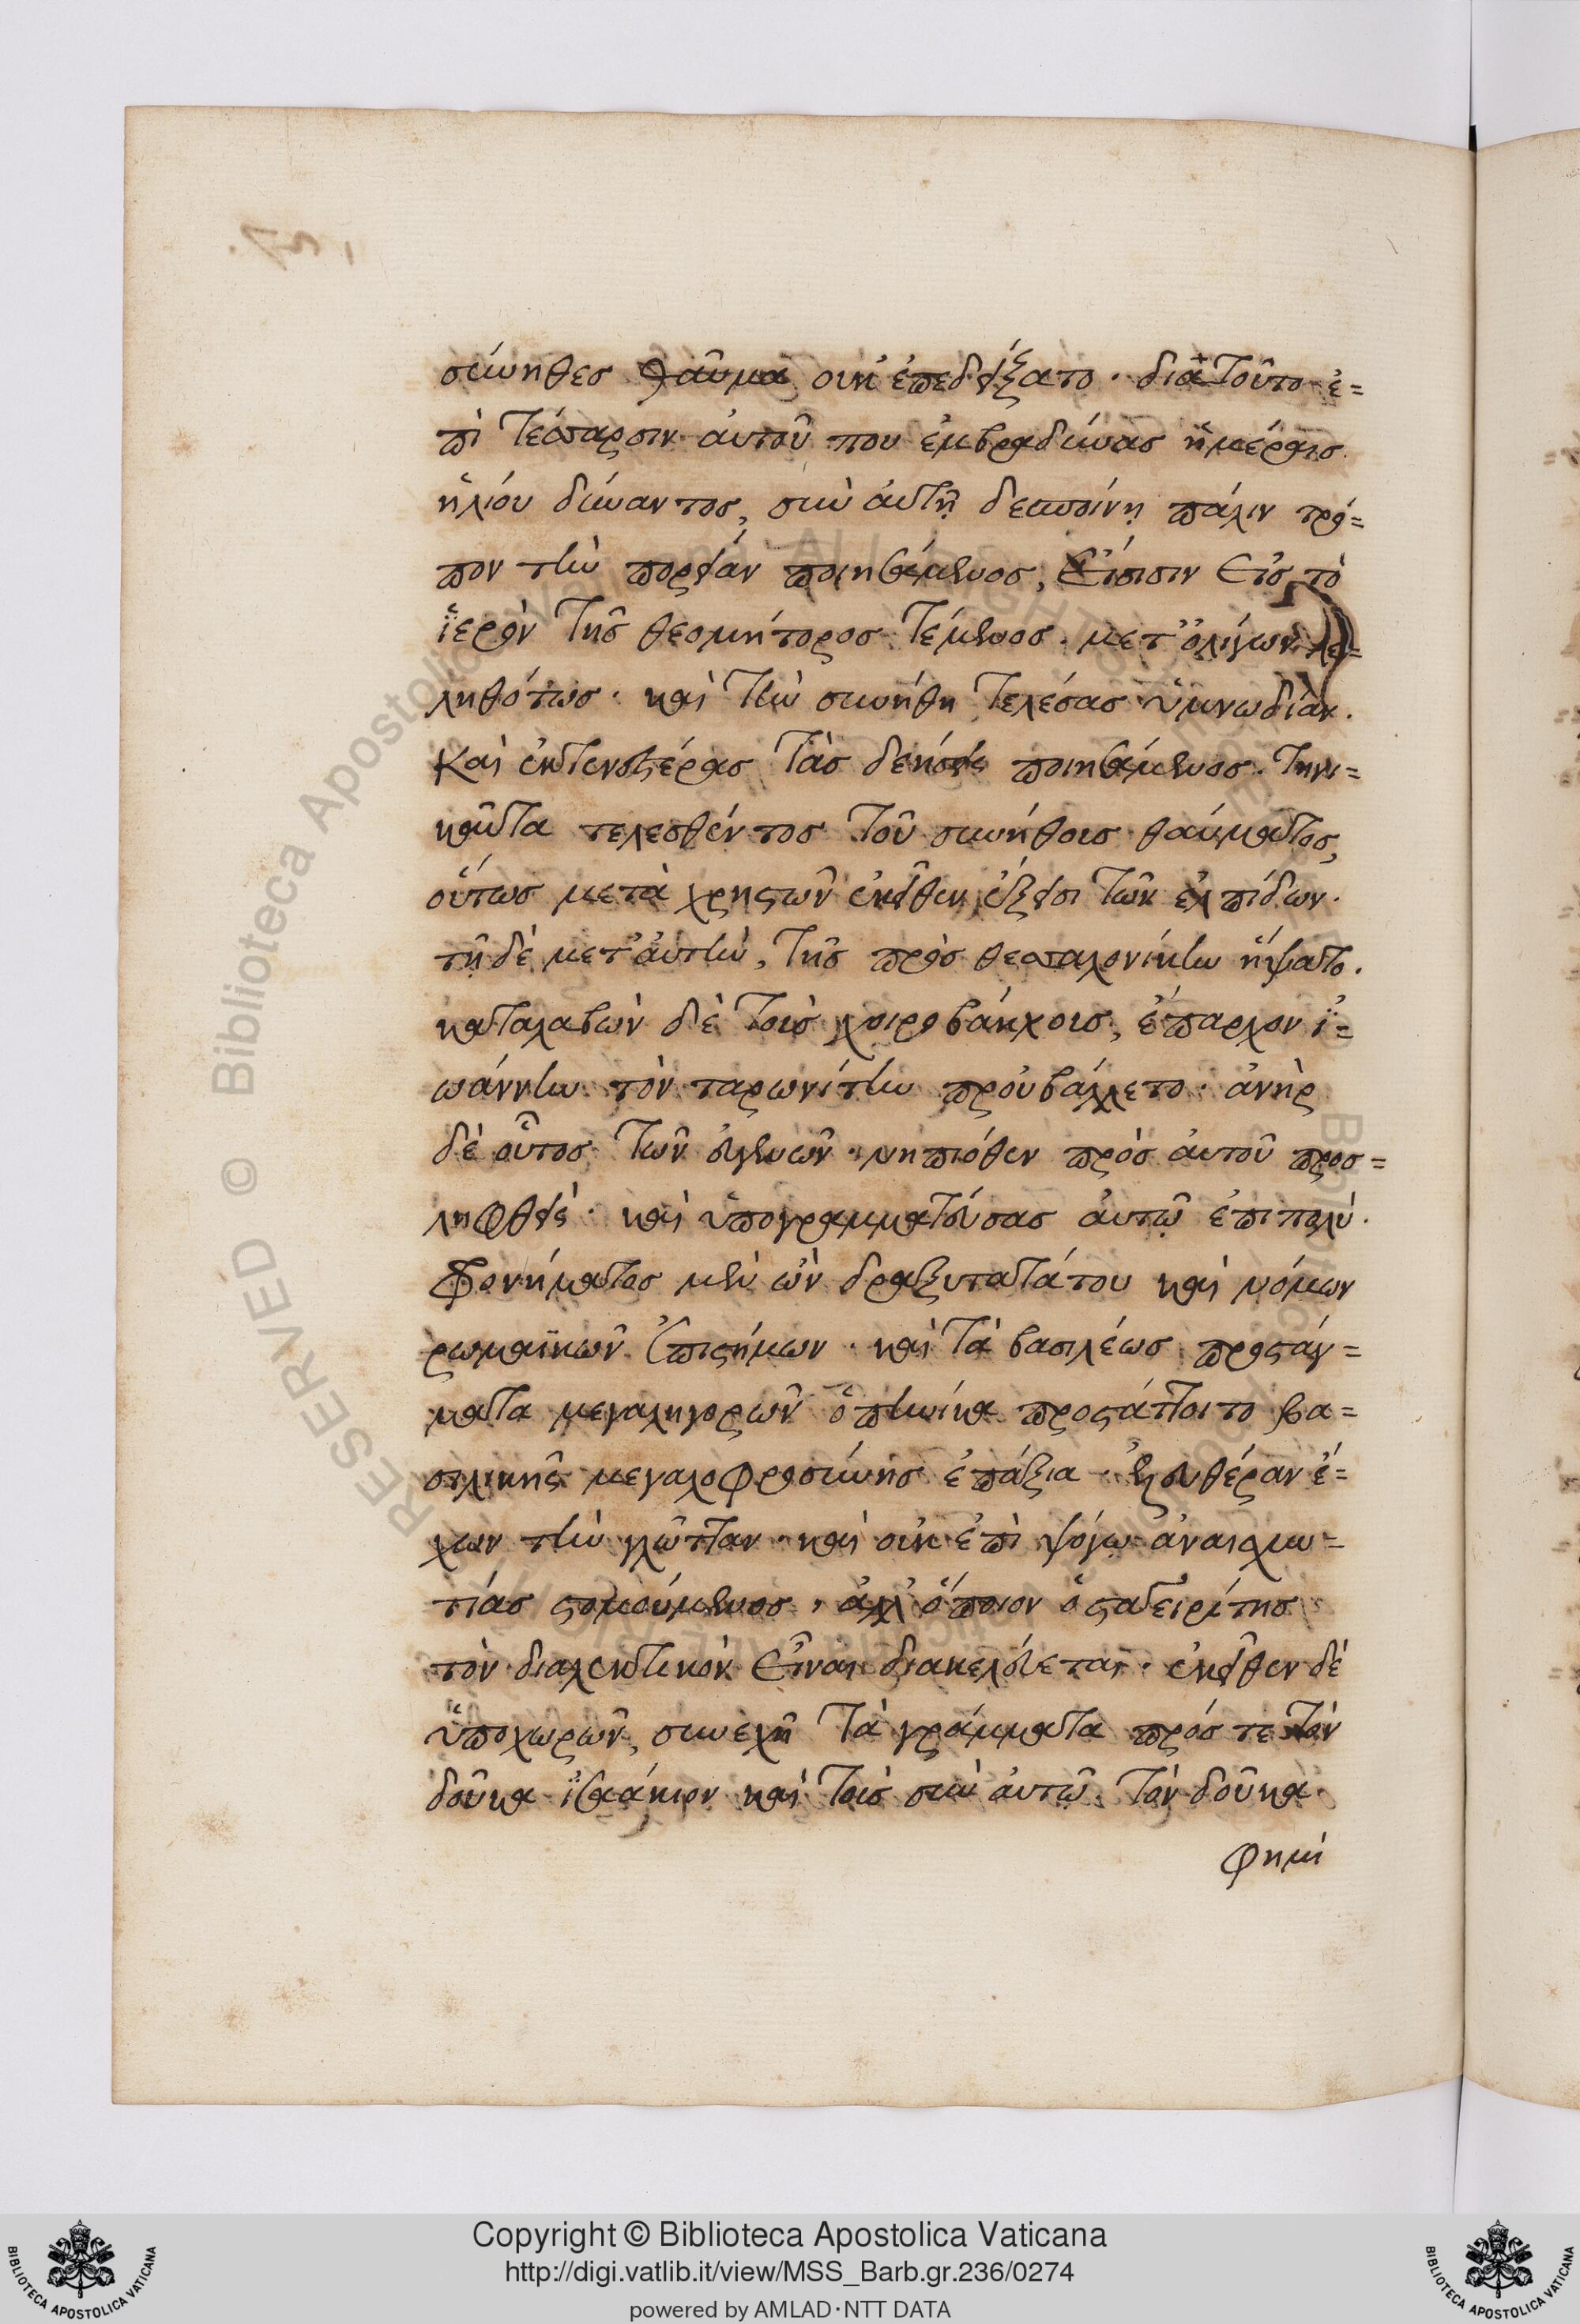 σύνηθες θαῦμα οὐκ ἐπεδείξατο· διὰ τοῦτο ἐ=
πὶ τέσσαρσιν αὐτοῦ που ἐμβραδύνας ἡμέραις
ἡλίου δύναντος, σὺν αὐτῇ δεσποίνῃ πάλιν τρό=
πον τὴν πορείαν ποιησάμενος, εἴσισιν εἰς τὸ
ἱερὸν τῆς θεομήτορος τέμενος· μετ' ὀλίγων λε=
ληθότως· καὶ τὴν συνήθη τελέσας ὑμνωδίαν.
Καὶ ἐκτενεστέρας τὰς δεήσεις ποιησάμενος· τηνι=
καῦτα τελεσθέντος τοῦ συνήθους θαύματος,
οὕτως μετὰ χρηστῶν ἐκεῖθεν ἔξεισι τῶν ἐλπίδων·
τῇ δὲ μετ' αὐτὴν, τῆς πρὸς θεσσαλονίκην ἥψατο.
καταλαβὼν δὲ τοὺς χοιροβάκχους, ἔπαρχον ἰ=
ωάννην τὸν ταρωνίτην προὐβάλλετο· ἀνὴρ
δὲ οὗτος τῶν εὐγενῶν· νηπιόθεν πρὸς αὐτοῦ προσ=
ληφθεὶς· καὶ ὑπογραμματεύσας αὐτῷ ἐπιπολύ.
Φρονήματος μὲν ὢν δραξυτατάτου καὶ νόμων
ρωμαϊκῶν ἐπιστήμων· καὶ τὰ βασιλέως προστάγ=
ματα μεγαληγορῶν ὁπηνίκα προστάττοιτο βα=
σιλικῆς μεγαλοφροσύνης ἐπάξια· ἐλευθέραν ἔ=
χων τὴν γλῶτταν· καὶ οὐκ ἐπὶ ψόγω ἀναισχυν=
τίας στομούμενος, ἀλλ' ὁποῖον ὁ σταγειρίτης
τὸν διαλεκτικὸν εἶναι διακελεύεται· ἐκεῖθεν δὲ
ὑποχωρῶν, συνεχῆ τὰ γράμματα πρός τε τὸν
δοῦκα ἰσαάκιον καὶ τοὺς σὺν αὐτῷ· τὸν δοῦκα
φημὶ
Copyright © Biblioteca Apostolica Vaticana
http://digi.vatlib.it/view/MSS_Barb.gr.236/0274
powered by AMLAD·NTT DATA